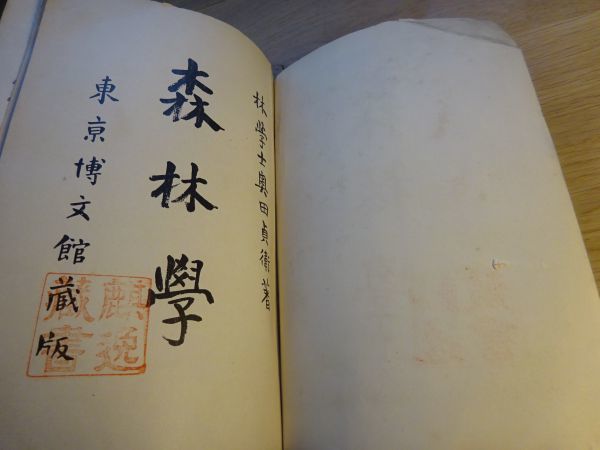 林學士奥田貞衞著
森林學
東京博文館蔵版
麒逸
蔵書